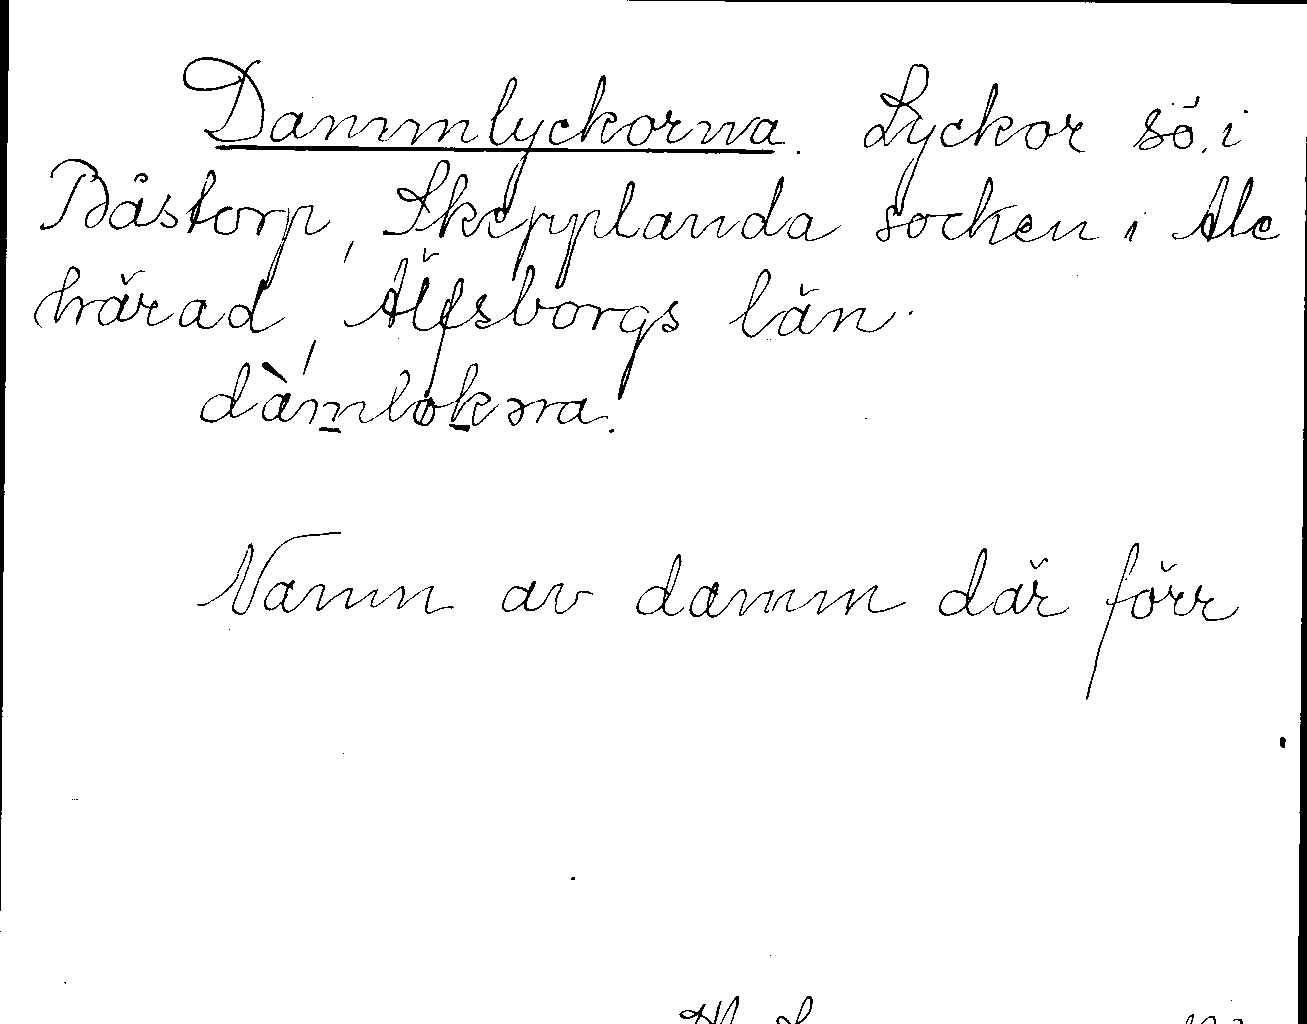 Dammlyckorna. Lyckor sö. i
Båstorp, Skepplanda socken i Ale
härad, Älfsborgs län.
dàmlokəra.
Namn av damm där förr